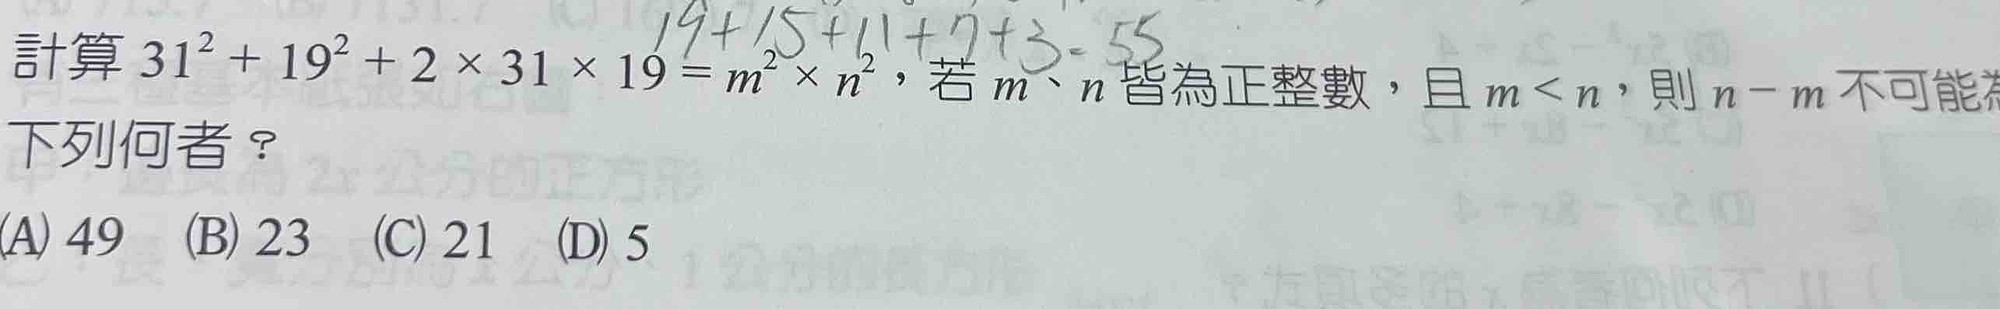 19+15+11+7+3=55
計算 31² + 19² + 2 × 31 × 19 = m² × n²，若 m、n 皆為正整數，且 m < n，則 n − m 不可能為
下列何者？
(A) 49 (B) 23 (C) 21 (D) 5